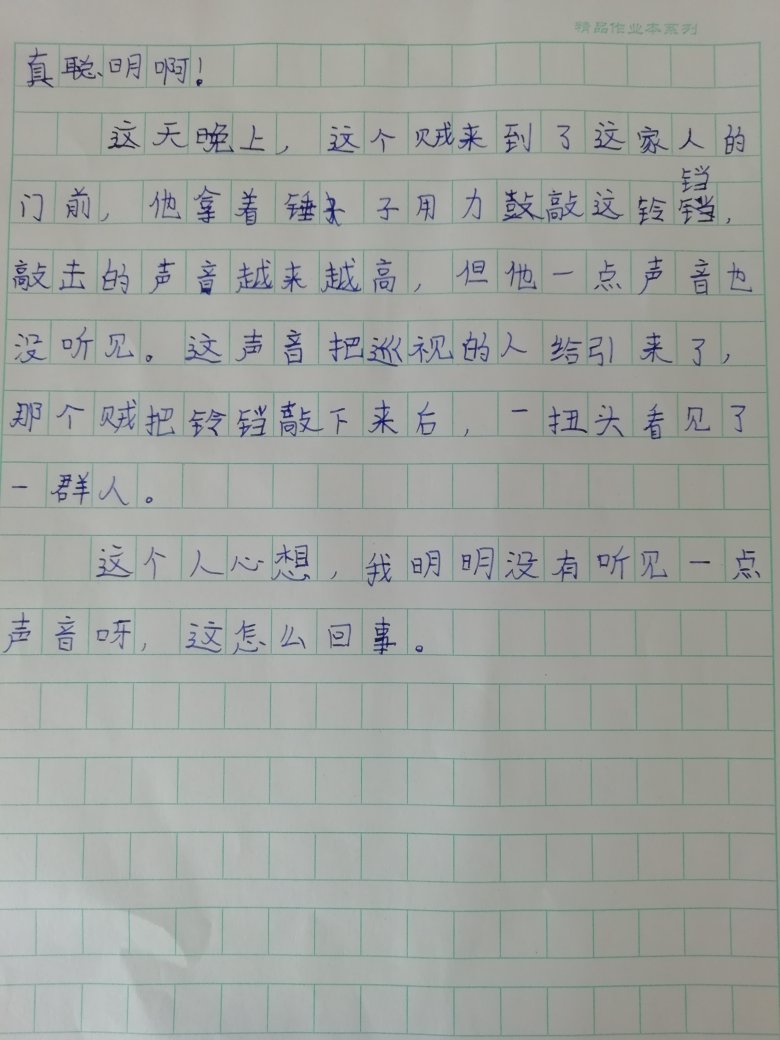 精品作业本系列
真聪明啊!
这天晚上,这个贼来到了这家人的
门前,他拿着锤子用力敲这铃铛,
敲击的声音越来越高,但他一点声音也
没听见。这声音把巡视的人给引来了,
那个贼把铃铛敲下来后,一扭头看见了
一群人。
这个人心想,我明明没有听见一点
声音呀,这怎么回事。